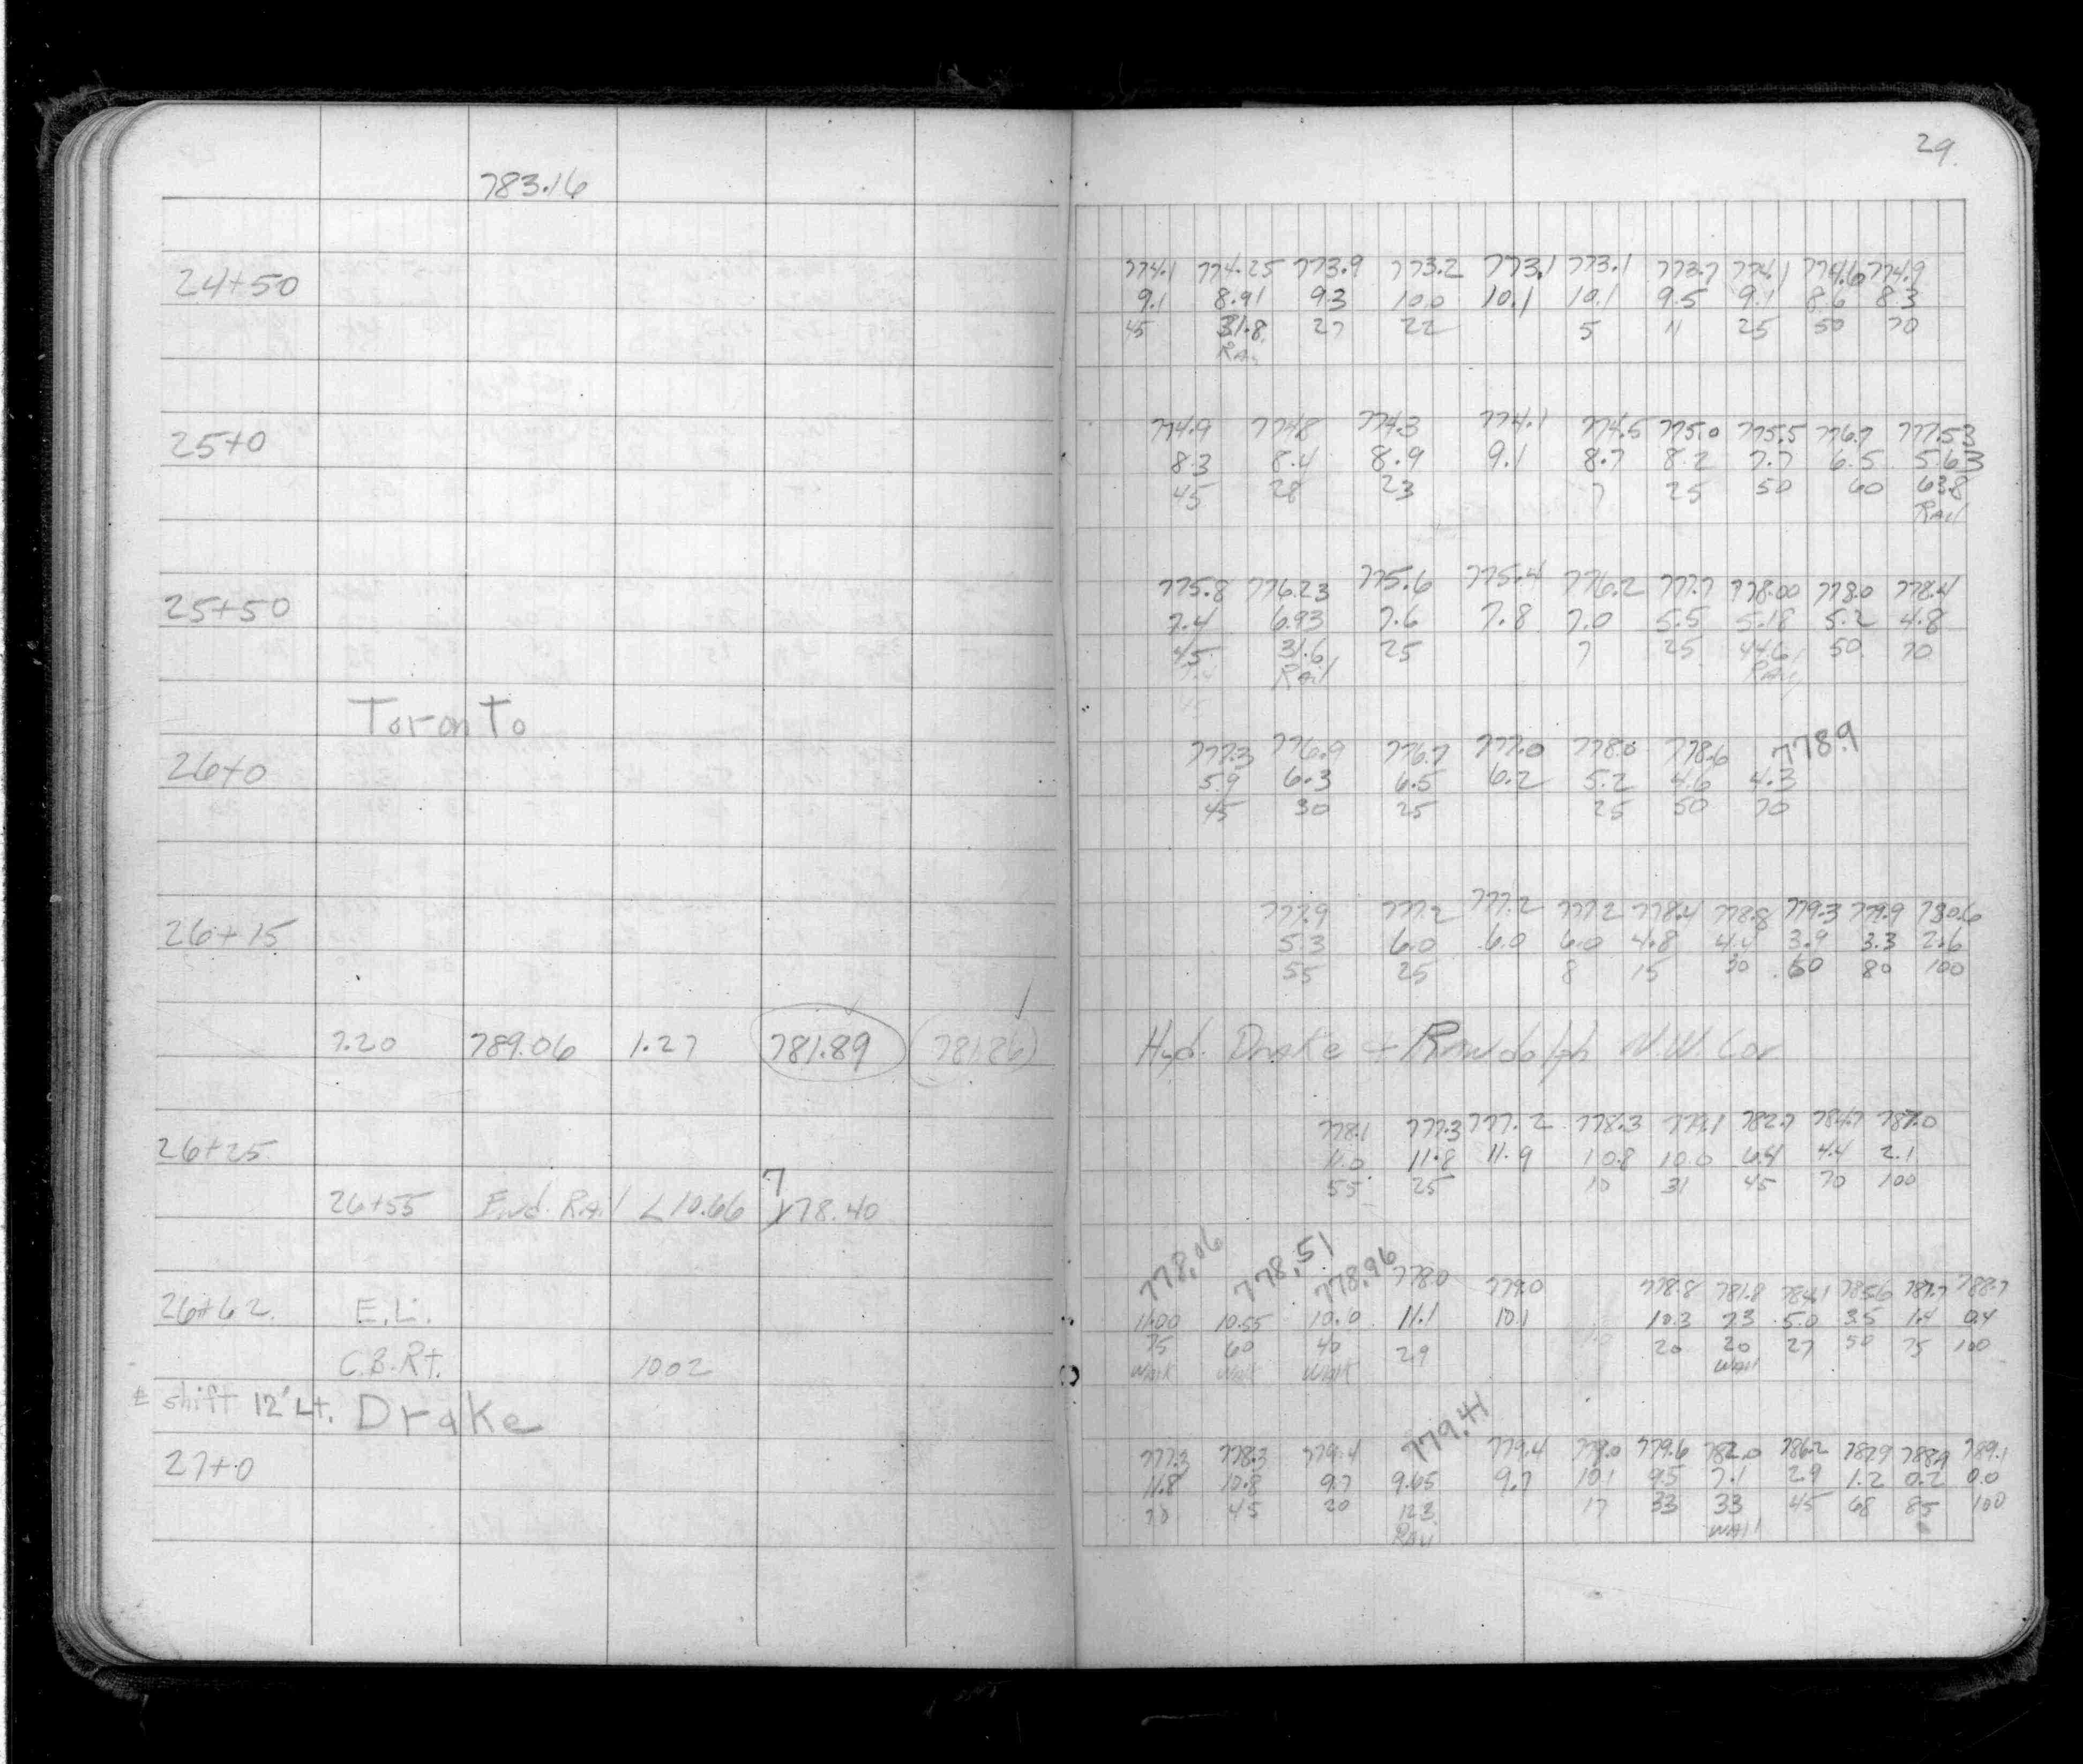 29.
783.16
774.1 774.25 773.9 773.2 773.1 773.1 773.7 774.1 774.6 774.9
24+50 9.1 8.91 9.3 10.0 10.1 10.1 9.5 9.1 8.6 8.3
45 31.8 27 22 5 11 25 50 70
Rail
774.9 774.8 774.3 774.1 774.5 775.0 775.5 776.7 777.53
25+0 8.3 8.4 8.9 9.1 8.7 8.2 7.7 6.5 5.63
45 28 23 7 25 50 60 63.8
Rail
775.8 776.23 775.6 775.4 776.2 777.7 778.00 778.0 778.4
25+50 7.4 6.93 7.6 7.8 7.0 5.5 5.18 5.2 4.8
45 31.6 25 7 25 44.6 50 70
Rail Rail
Toronto
777.3 776.9 776.7 777.0 778.0 778.6 778.9
26+0 5.9 6.3 6.5 6.2 5.2 4.6 4.3
45 30 25 25 50 70
777.9 777.2 777.2 777.2 778.4 778.8 779.3 779.9 780.6
26+15 5.3 6.0 6.0 6.0 4.8 4.4 3.9 3.3 2.6
55 25 8 15 30 50 80 100
7.20 789.06 1.27 781.89 (781.86) Hyd. Drake + Randolph N.W. Cor
778.1 777.3 777.2 778.3 779.1 782.7 784.7 787.0
26+25 11.0 11.8 11.9 10.8 10.0 6.4 4.4 2.1
55 25 10 31 45 70 100
26+55 End. Rail < 10.66 778.40
778.06 778.51 778.96 778.0 779.0 778.8 781.8 784.1 785.6 787.7 788.7
26+62 E.L. 11.00 10.55 10.10 11.1 10.1 10.3 7.3 5.0 3.5 1.4 0.4
75 60 40 29 20 20 27 50 75 100
C.B. Rt. 1002 Walk Walk Walk Wall
± shift 12' Lt. Drake
777.3 778.3 779.4 779.41 779.4 779.0 779.6 782.0 786.2 787.9 788.9 789.1
27+0 11.8 10.8 9.7 9.65 9.7 10.1 9.5 7.1 2.9 1.2 0.2 0.0
70 45 20 12.3 17 33 33 45 68 85 100
Rail Wall